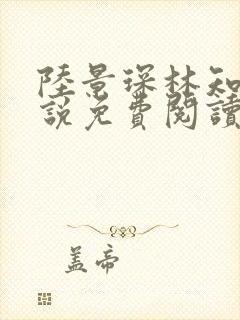 陸景琛林知
說免費閱讀
蓋帝